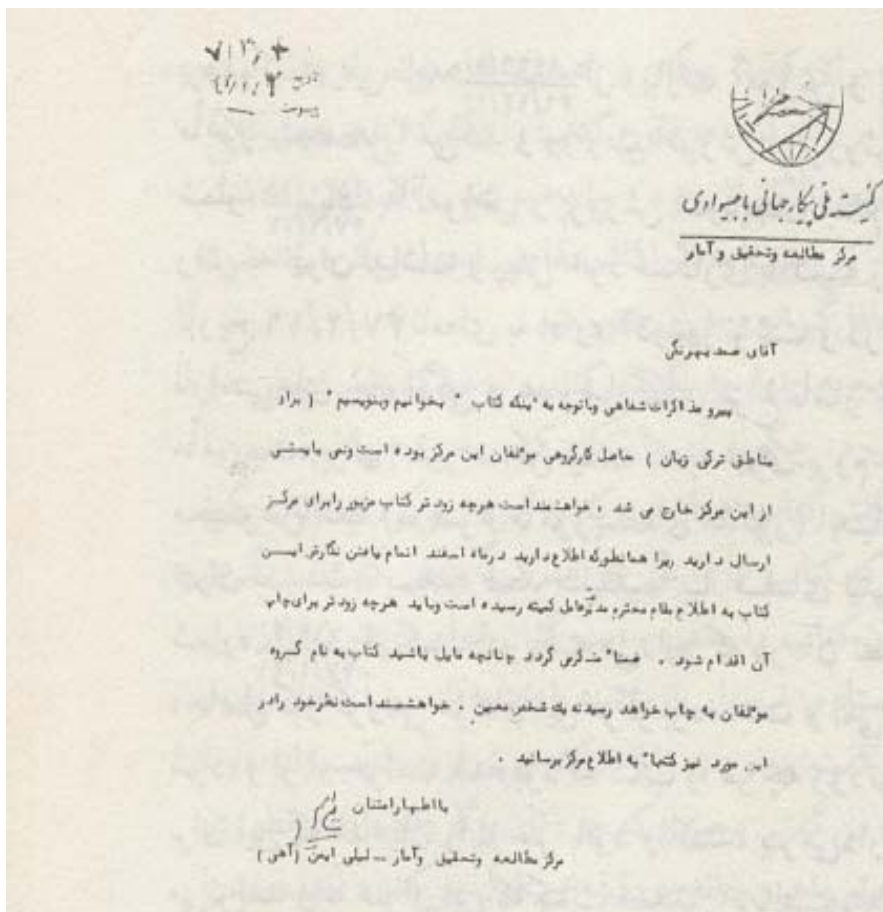 تاریخ
پیوست
کمیته ملی پیکار جهانی با بیسوادی
مرکز مطالعه وتحقیق وآمار
آقای صمد بهرنگی
پیرو مذاکرات شفاهی وباتوجه به اینکه کتاب " بخوانیم وبنویسیم " ( برای
مناطق ترکی زبان ) حاصل کارگروهی مولفان این مرکز بوده است ونمی بایستی
از این مرکز خارج می شد ، خواهشمند است هرچه زود تر کتاب مزبور رابرای مرکز
ارسال دارید زیرا همانطورکه اطلاع دارید درماه اسفند اتمام یافتن نگارش ایـــن
کتاب به اطلاع مقام محترم مدیرعامل کمیته رسیده است وباید هرچه زودتر برای چاپ
آن اقدام شود . ضمنا" متذکرمی گردد چنانچه مایل باشید کتاب به نام گـروه
مولفان به چاپ خواهد رسیدنه یک شخص معین . خواهشمنداست نظرخود رادر
این مورد نیز کتبا" به اطلاع مرکز برسانید .
بااظهارامتنان
مرکز مطالعه وتحقیق وآمار - لیلی ایمن (آهی)